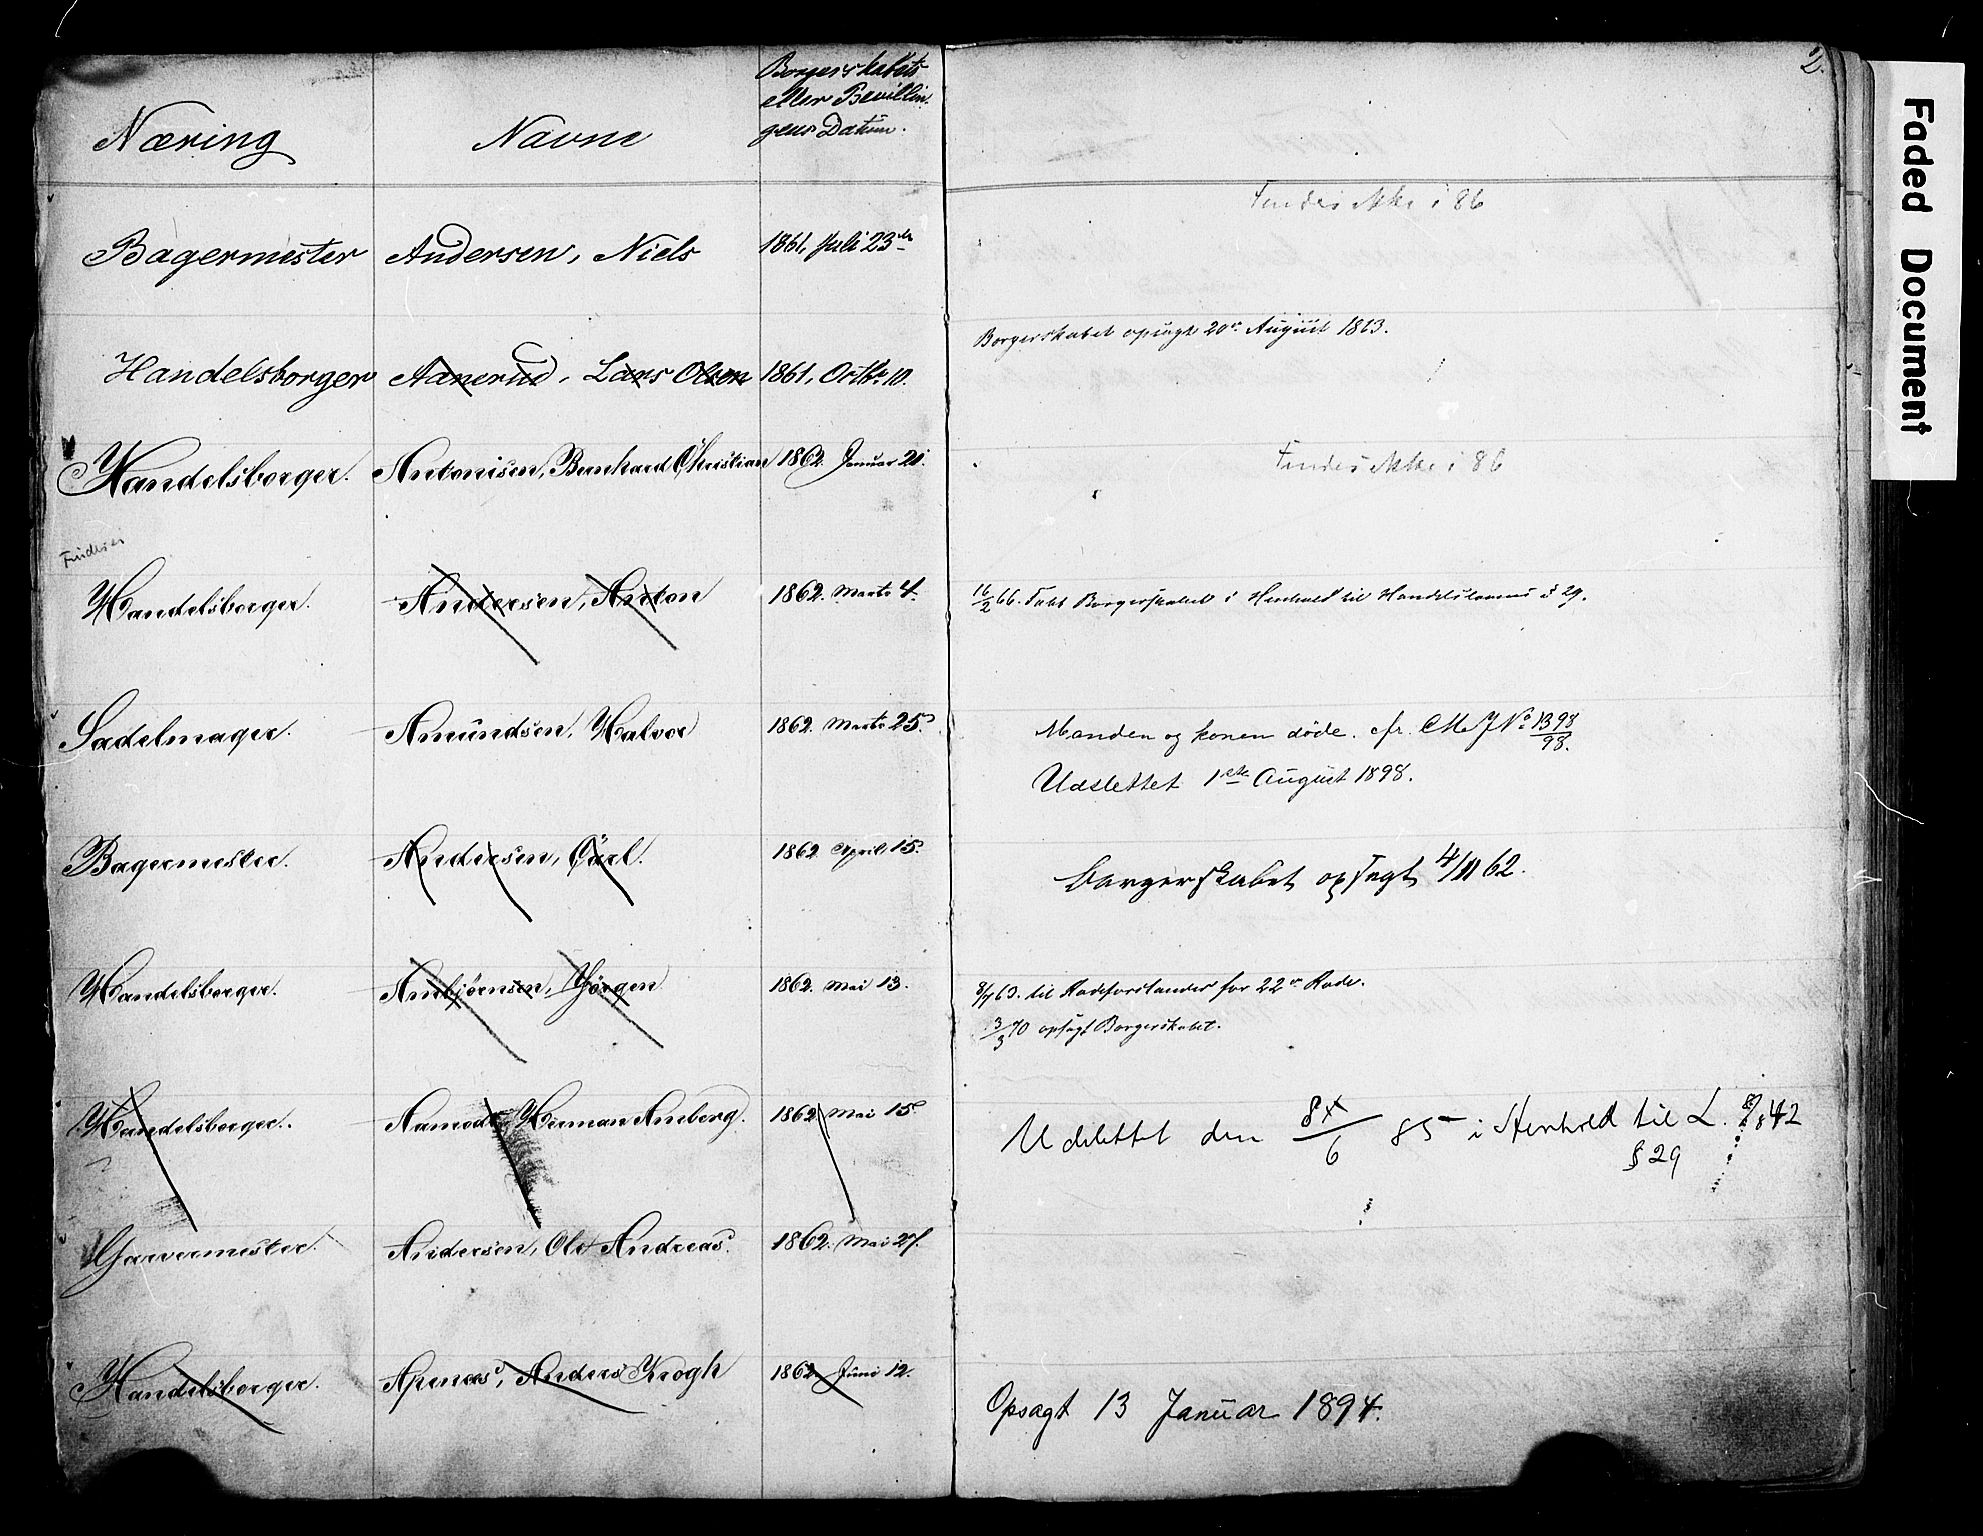 2.
Faded Document
Næring Navne Borgerskabets
eller Bevillin-
gens Datum.
Findes ikke i 86
Bagermester Andersen, Niels 1861, Juli 23de
Borgerskabet opsagt 20de August 1863.
Handelsborger Aanerud, Lars Olsen 1861, Octbr 10.
Handelsborger. Antonisen, Bernhard Christian 1862 Januar 21. Findes ikke i 86
Findes ei
Handelsborger. Andersen, Anton 1862. Marts 4. 16/2 66. Tabt Borgerskabet i Henhold til Handelslovens § 29.
Sadelmager. Amundsen, Halvor 1862. Marts 25. Manden og konen døde. cfr. JNo 1398/98.
Udslettet 1ste August 1898.
Bagermester. Andersen, Carl. 1862 April 15. Borgerskabet opsagt 4/11 62.
Handelsborger. Arnbjørnsen, Jørgen 1862. Mai 13. 8/7 63. til Rodeforstander for 22de Rode.
3/3 70 opsagt Borgerskabet.
Handelsborger. Aamodt, Herman Amberg. 1862 Mai 15. Udslettet den 8/6 85 i Henhold til L. 8/8 842
§ 29
Garvermester. Andersen, Ole Andreas. 1862. Mai 27.
Handelsborger. Apenæs, Anders Krogh 1862 Juni 12.
Opsagt 13 Januar 1894.